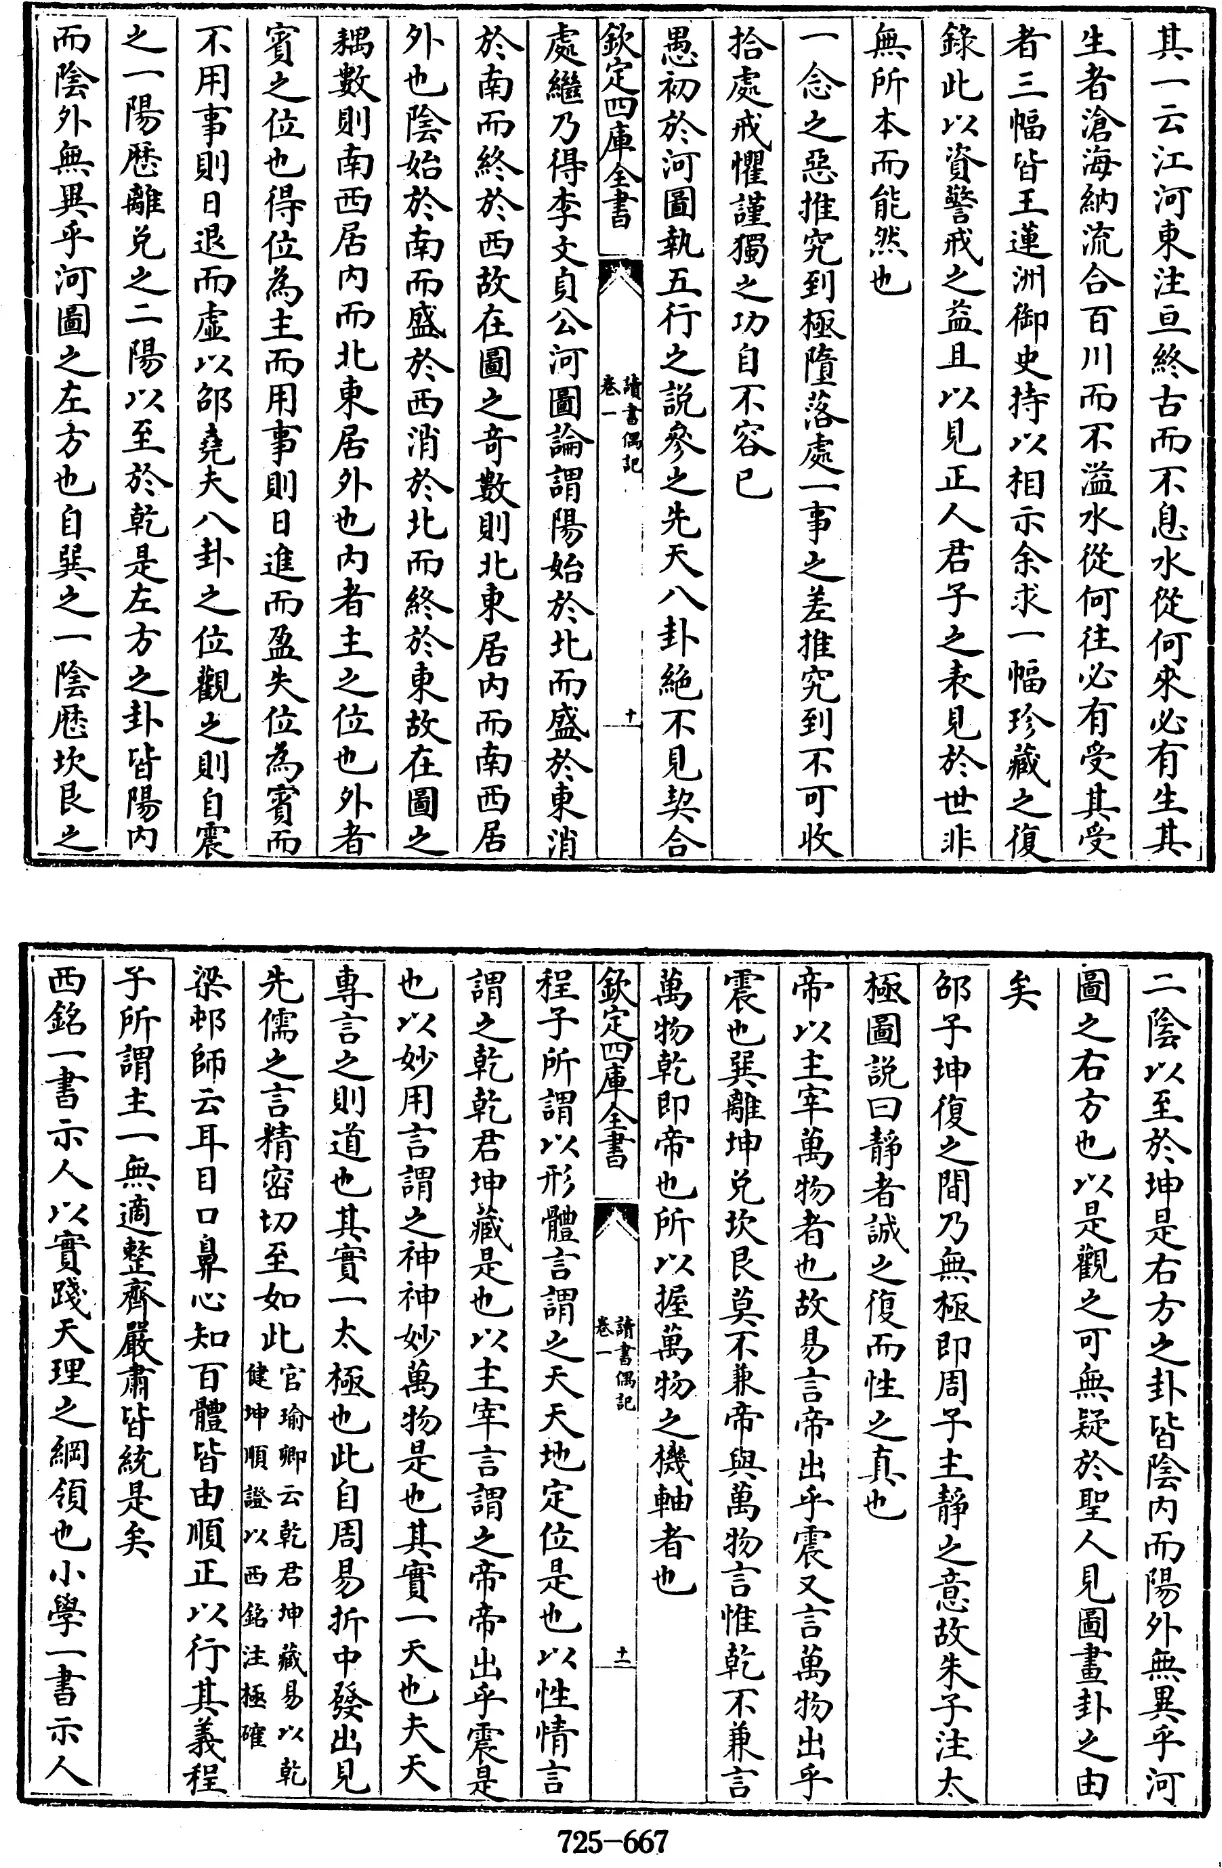 其一云江河東注亘終古而不息水從何來必有生其
生者滄海納流合百川而不溢水從何往必有受其受
者三幅皆王蓮洲御史持以相示余求一幅珍藏之復
錄此以資警戒之益且以見正人君子之表見於世非
無所本而能然也
一念之惡推究到極墮落處一事之差推究到不可收
拾處戒懼謹獨之功自不容已
愚初於河圖執五行之說參之先天八卦絶不見契合
欽定四庫全書
讀書偶記
卷一
十
處繼乃得李文貞公河圖論謂陽始於北而盛於東消
於南而終於西故在圖之奇數則北東居内而南西居
外也陰始於南而盛於西消於北而終於東故在圖之
耦數則南西居内而北東居外也内者主之位也外者
賓之位也得位為主而用事則日進而盈失位為賓而
不用事則日退而虛以邵堯夫八卦之位觀之則自震
之一陽歷離兌之二陽以至於乾是左方之卦皆陽内
而陰外無異乎河圖之左方也自巽之一陰歷坎艮之
二陰以至於坤是右方之卦皆陰内而陽外無異乎河
圖之右方也以是觀之可無疑於聖人見圖畫卦之由
矣
邵子坤復之間乃無極即周子主靜之意故朱子注太
極圖説曰靜者誠之復而性之真也
帝以主宰萬物者也故易言帝出乎震又言萬物出乎
震也巽離坤兌坎艮莫不兼帝與萬物言惟乾不兼言
萬物乾即帝也所以握萬物之機軸者也
欽定四庫全書
讀書偶記
卷一
十一
程子所謂以形體言謂之天天地定位是也以性情言
謂之乾乾君坤藏是也以主宰言謂之帝帝出乎震是
也以妙用言謂之神神妙萬物是也其實一天也夫天
專言之則道也其實一太極也此自周易折中發出見
先儒之言精密切至如此官瑜卿云乾君坤藏易以乾
健坤順證以西銘注極確
梁邨師云耳目口鼻心知百體皆由順正以行其義程
子所謂主一無適整齊嚴肅皆統是矣
西銘一書示人以實踐天理之綱領也小學一書示人
725-667